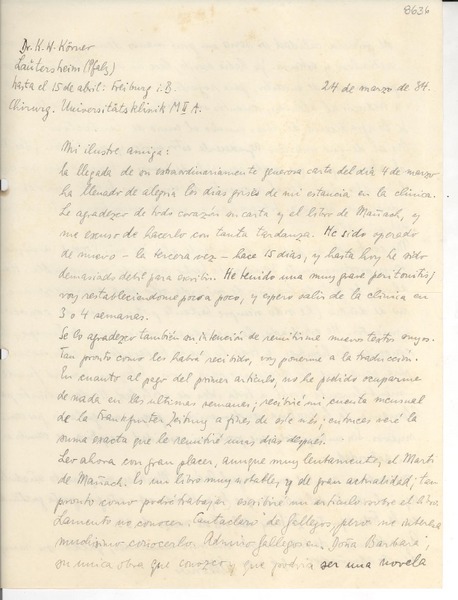 8636
Dr. K. W. Körner
Lautersheim (Pfalz)
hasta el 15 de abril: Freiburg i. B.
24 de marzo de 34.
Chirurg. Universitätsklinik M II A.
Mi ilustre amiga:
la llegada de su extraordinariamente generosa carta del día 4 de marzo
ha llenado de alegría los días grises de mi estancia en la clínica.
Le agradezco de todo corazón su carta y el libro de Mañach, y
me excuso de hacerlo con tanta tardanza. He sido operado
de nuevo — la tercera vez — hace 15 días, y hasta hoy he sido
demasiado débil para escribir. He tenido una muy grave peritonitis;
voy restableciéndome poco a poco, y espero salir de la clínica en
3 o 4 semanas.
Se lo agradezco también su intención de remitirme nuevos textos suyos.
Tan pronto como les habré recibido, voy ponerme a la traducción.
En cuanto al pago del primer artículo, no he podido ocuparme
de nada en las últimas semanas; recibiré mi cuenta mensual
de la Frankfurter Zeitung a fines de este mes; entonces veré la
suma exacta que le remitiré unos días después.
Leo ahora con gran placer, aunque muy lentamente, el Martí
de Mañach. Es un libro muy notable, y de gran actualidad; tan
pronto como podré trabajar escribiré mi artículo sobre el libro.
Lamento no conocer Cantaclaro de Gallegos, pero me interesa
muchísimo conocerlo. Admiro Gallegos en "Doña Barbara",
su única obra que conozco, y que podría ser una novela